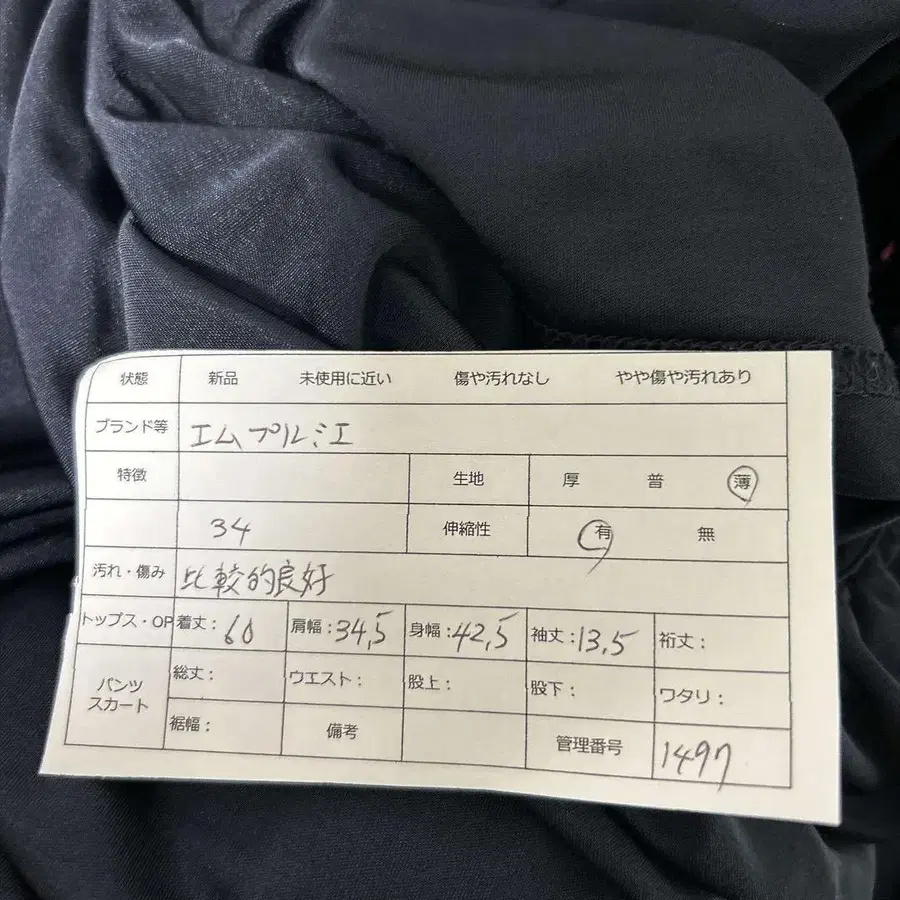 状態 新品 未使用に近い 傷や汚れなし やや傷や汚れあり
ブランド等 エムプルミエ
特徴 生地 厚 普 薄
34 伸縮性 有 無
汚れ・傷み 比較的良好
トップス・OP 着丈:60 肩幅:34,5 身幅:42,5 袖丈:13,5 裄丈:
パンツ スカート 総丈: ウエスト: 股上: 股下: ワタリ:
裾幅: 備考 管理番号 1497